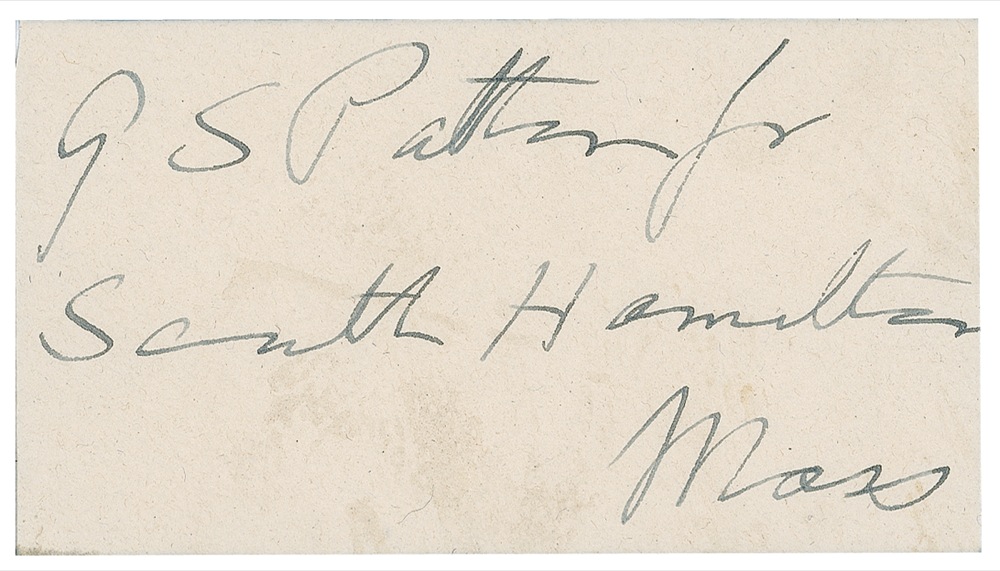 G S Patton Jr
South Hamilton
Mass